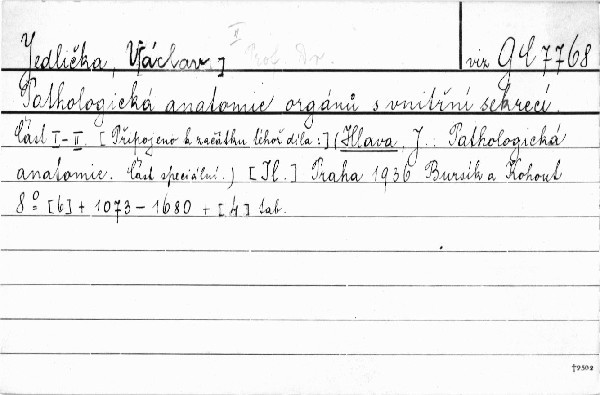 Jedlička, Václav] II Prof. Dr. viz GE 7768
Pathologická anatomie orgánů s vnitřní sekrecí
Část I-II. [Připojeno k začátku téhož díla:] (Hlava, J.: Pathologická
anatomie. Část speciální.) [Il.] Praha 1936 Bursík a Kohout
8° [6] + 1073 – 1680 + [4] tab.
†2502